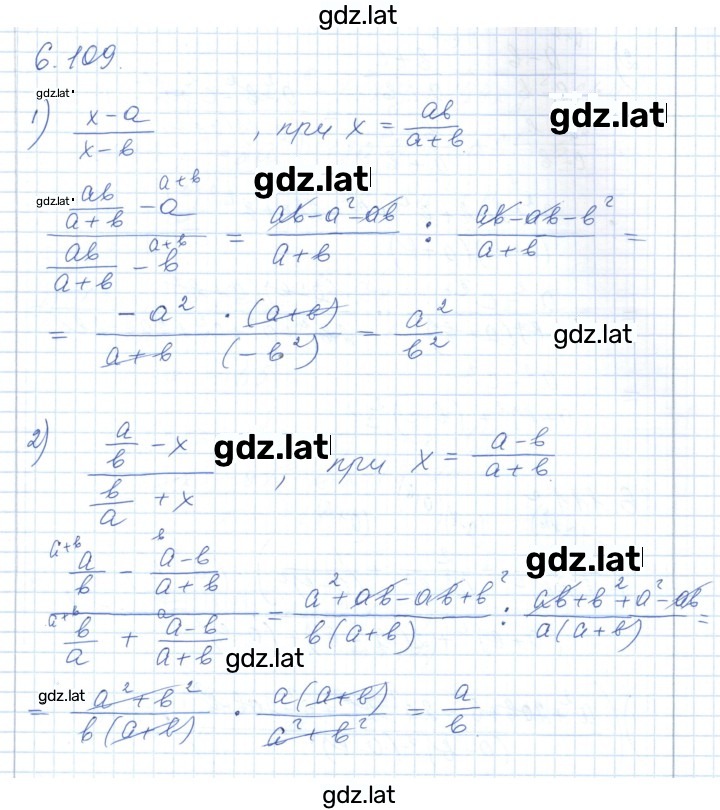 gdz.lat
6.109.
gdz.lat
1) (x-a)/(x-b) , при x = ab/(a+b)
gdz.lat
gdz.lat
gdz.lat
(ab/(a+b) - a^(a+b)) / (ab/(a+b) - b^(a+b)) = (ab-a²-ab)/(a+b) : (ab-ab-b²)/(a+b) =
= (-a² · (a+b))/(a+b (-b²)) = a²/b²
gdz.lat
2) (a/b - x)/(b/a + x) , при x = (a-b)/(a+b)
gdz.lat
gdz.lat
(^(a+b) a/b - ^b (a-b)/(a+b)) / (^(a+b) b/a + ^a (a-b)/(a+b)) = (a²+ab-ab+b²)/(b(a+b)) : (ab+b²+a²-ab)/(a(a+b)) =
gdz.lat
gdz.lat
= (a²+b²)/(b(a+b)) · (a(a+b))/(a²+b²) = a/b.
gdz.lat